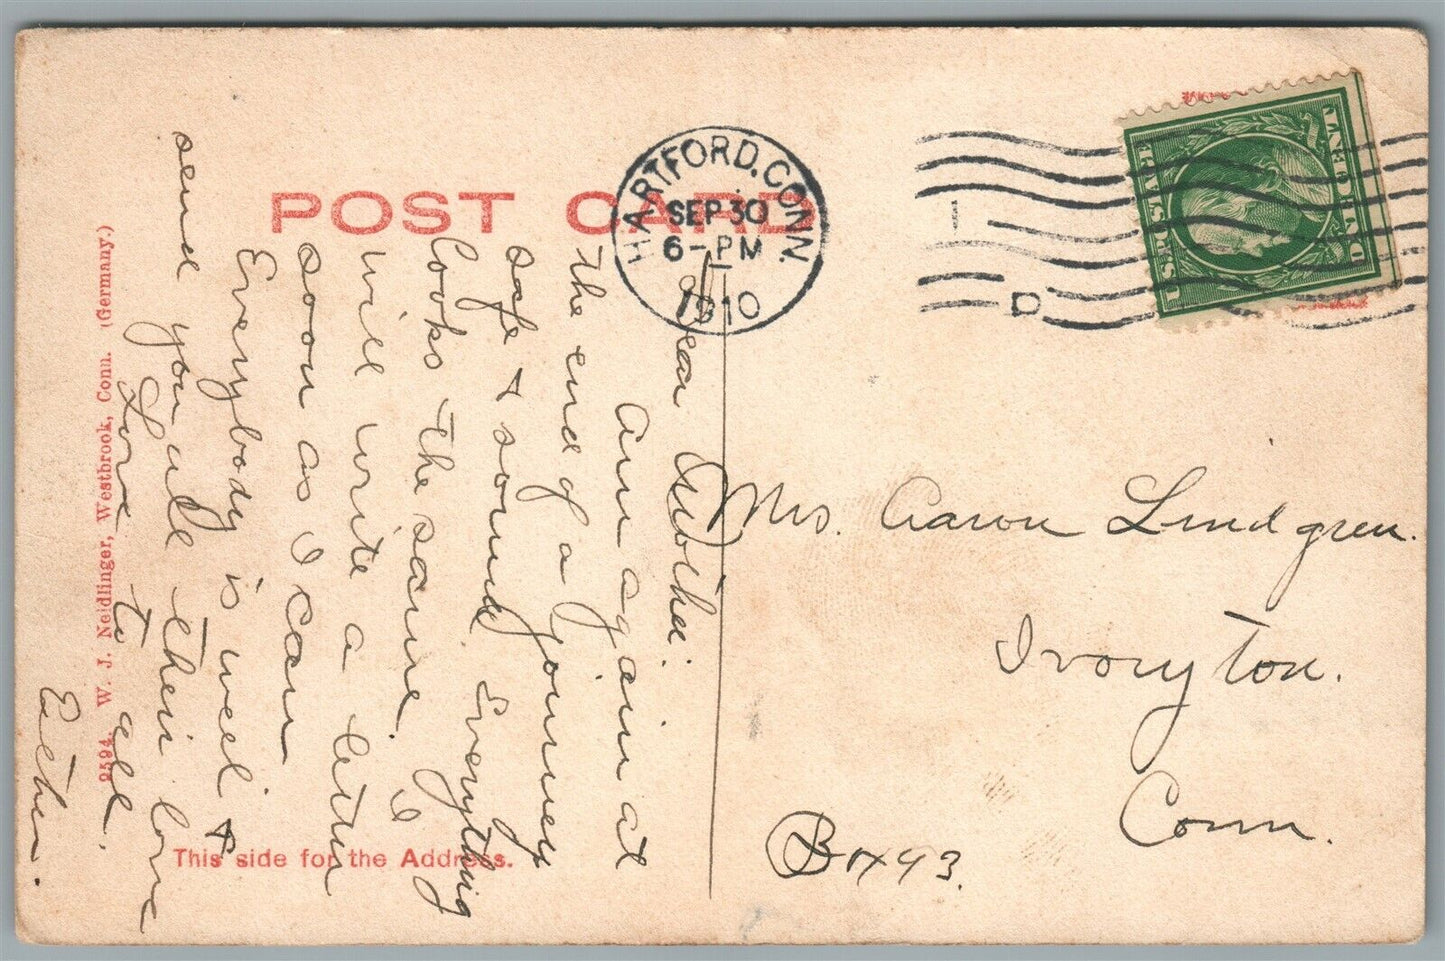 POST CARD
HARTFORD, CONN.
SEP 30
6-PM
1910
D
U.S. POSTAGE
ONE 1 CENT
Dear Mother:
Am again at
the end of a journey
safe & sound. Everything
looks the same. I
will write a letter
soon as I can
Everybody is well &
send you all their love
Love to all.
Esther.
Mrs. Aaron Lindgren.
Ivoryton.
Conn.
Box 93.
This side for the Address.
2594. W. J. Neidlinger, Westbrook, Conn. (Germany.)